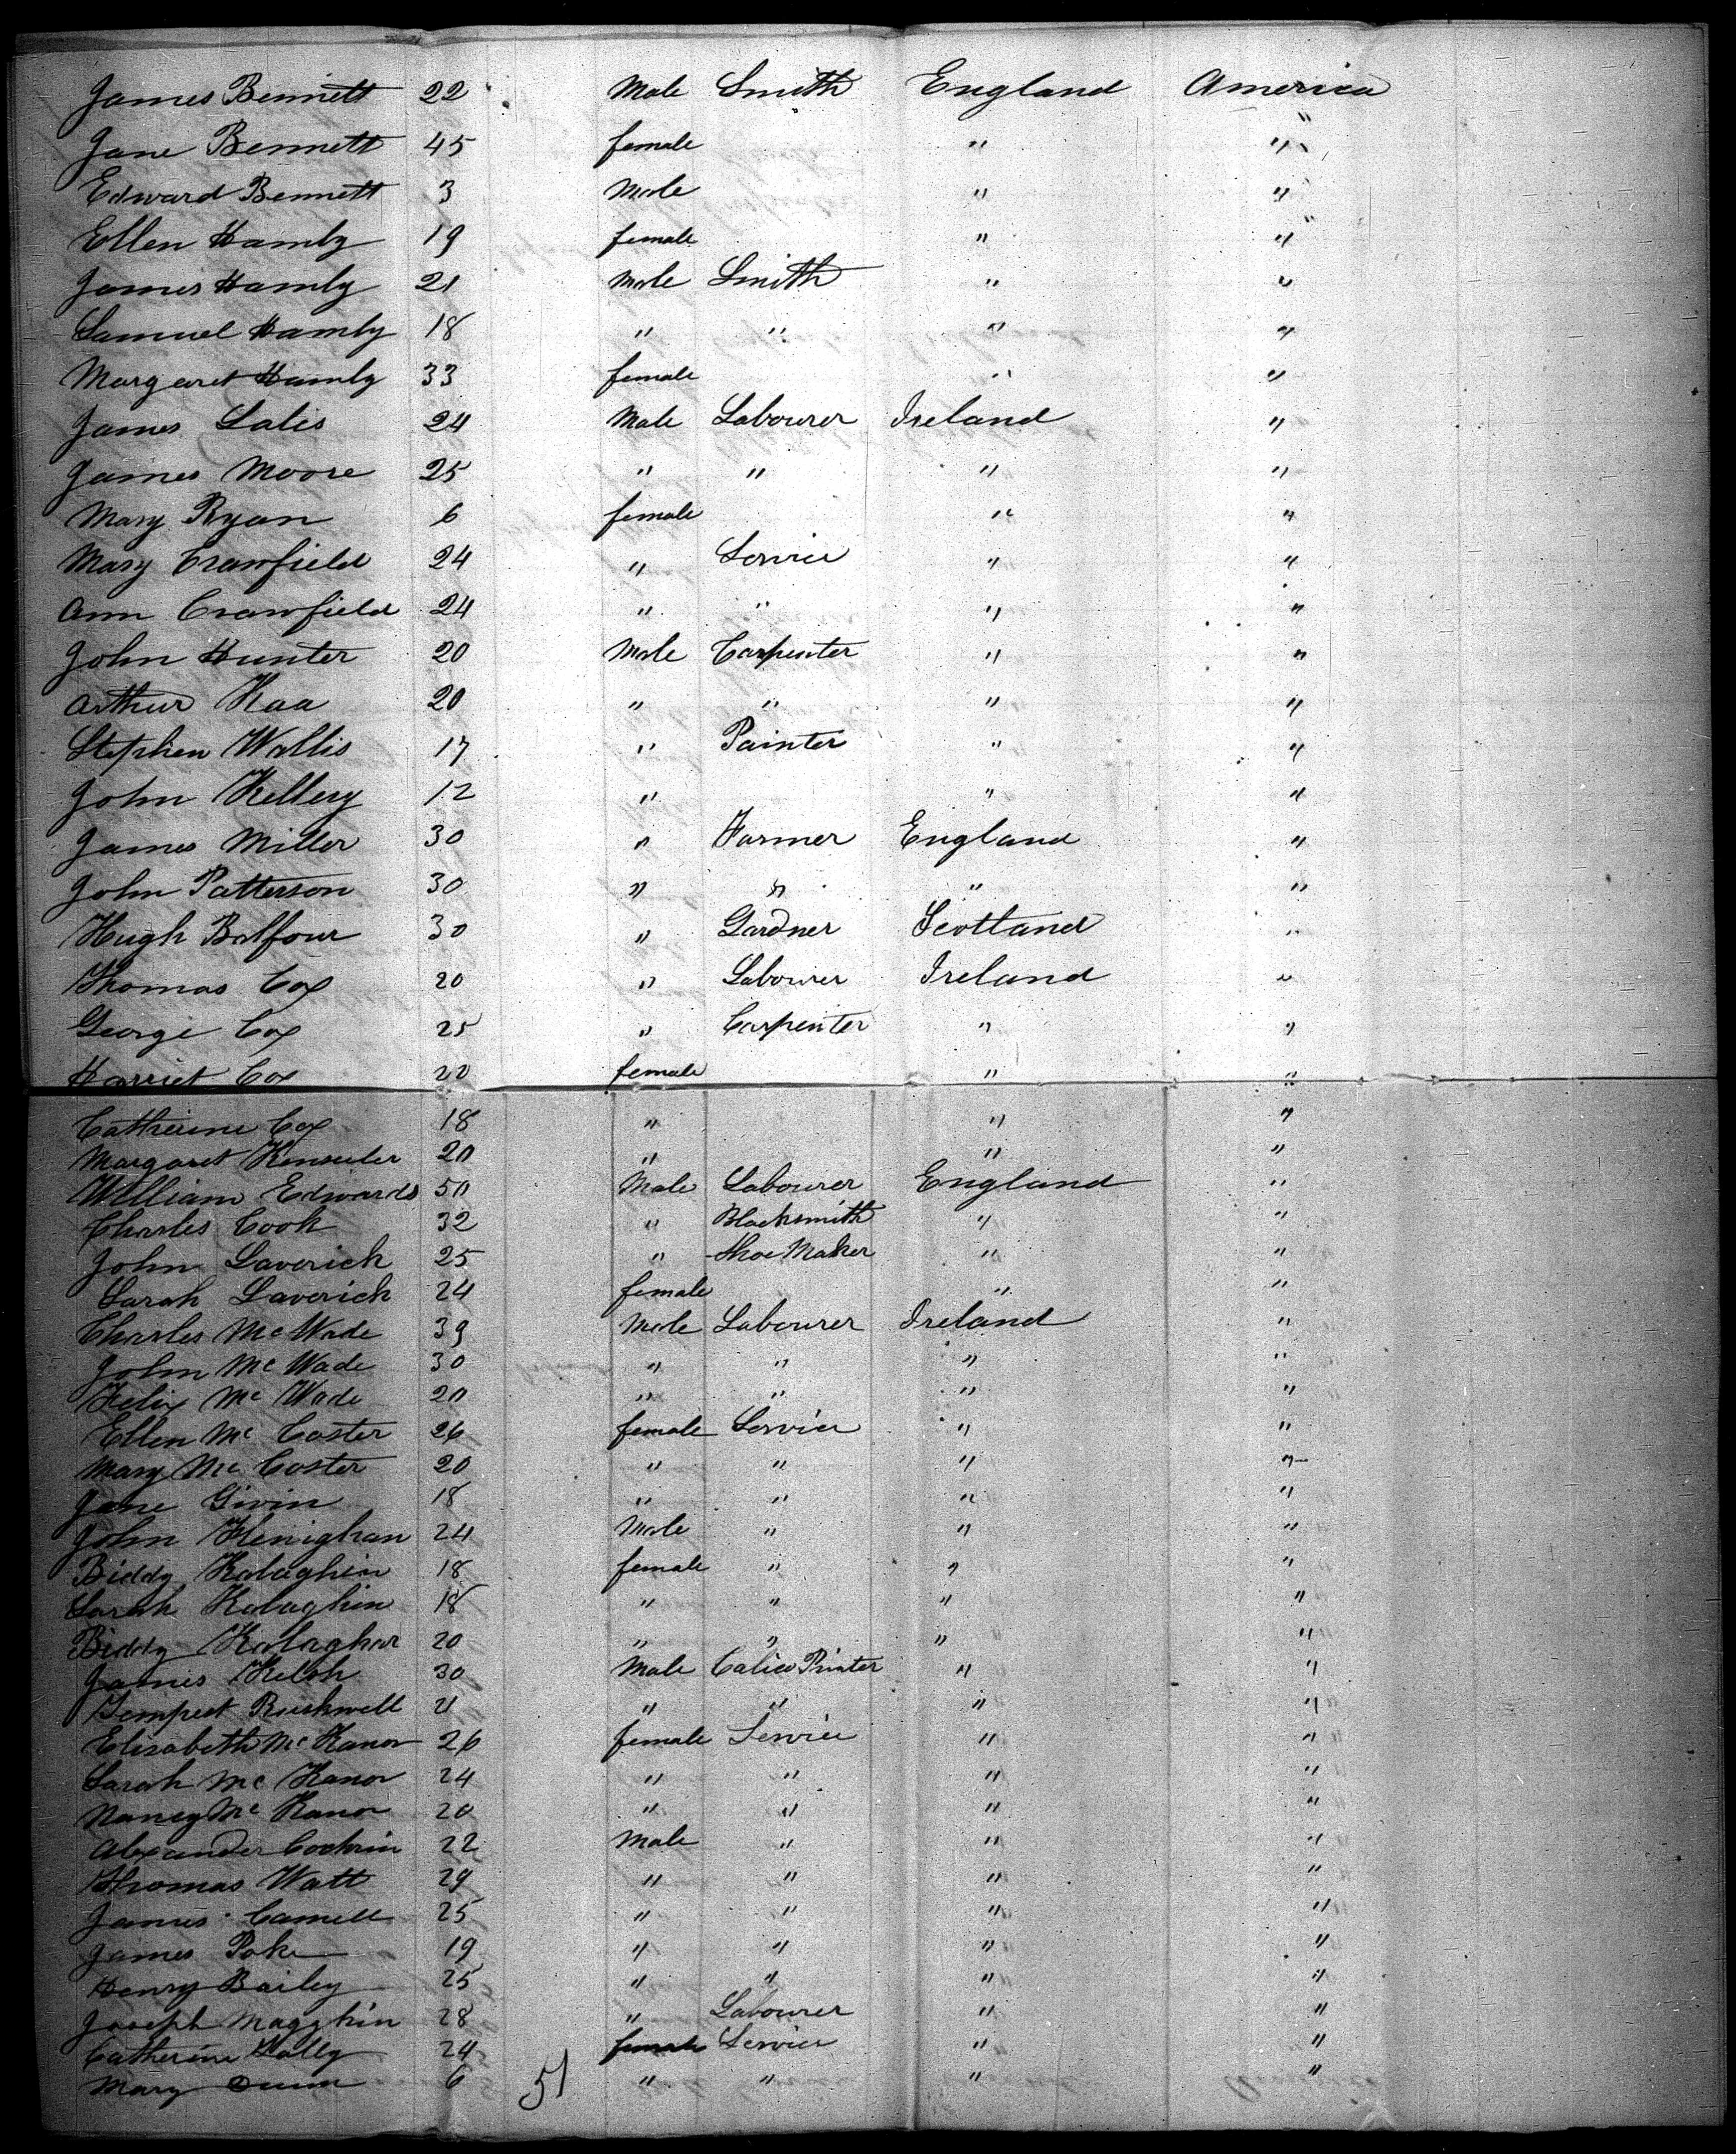 James Bennett 22 Male Smith England America
Jane Bennett 45 female " "
Edward Bennett 3 Male " "
Ellen Hamly 19 female " "
James Hamly 21 Male Smith " "
Samuel Hamly 18 " " " "
Margaret Hamly 33 female " "
James Lalis 24 Male Labourer Ireland "
James Moore 25 " " " "
Mary Ryan 6 female " "
Mary Crawfield 24 " Service " "
Ann Crawfield 24 " " " "
John Hunter 20 Male Carpenter " "
Arthur Kaa 20 " " " "
Stephen Wallis 17 " Painter " "
John Kellery 12 " " "
James Miller 30 " Farmer England "
John Patterson 30 " " " "
Hugh Balfour 30 " Gardner Scotland "
Thomas Cox 20 " Labourer Ireland "
George Cox 25 " Carpenter " "
Harriet Cox 20 female " "
Catherine Cox 18 " " "
Margaret 20 " " "
William Edwards 50 Male Labourer England "
Charles Cook 32 " Blacksmith " "
John Laverick 25 " Shoe Maker " "
Sarah Laverick 24 female " "
Charles Mc Wade 39 Male Labourer Ireland "
John Mc Wade 30 " " " "
Felix Mc Wade 20 " " " "
Ellen Mc Coster 26 female Service " "
Mary Mc Coster 20 " " " "
Jane Givin 18 " " " "
John Flenighan 24 Male " " "
Biddy Kalaghin 18 female " " "
Sarah Kalaghin 18 " " " "
Biddy Kalaghar 20 " " " "
James Kelsh 30 Male Calico Printer " "
Tempest Rushwell 21 " " " "
Elisabeth Mc Kanor 26 female Service " "
Sarah Mc Kanor 24 " " " "
Nancy Mc Kanor 20 " " " "
Alexander Cochrin 22 Male " " "
Thomas Watt 29 " " " "
James Camell 25 " " " "
James Poke 19 " " " "
Henry Bailey 25 " " " "
Joseph Magghin 28 " Labourer " "
Catherine Lally 24 female Service " "
Mary Dunn 6 51 " " " "